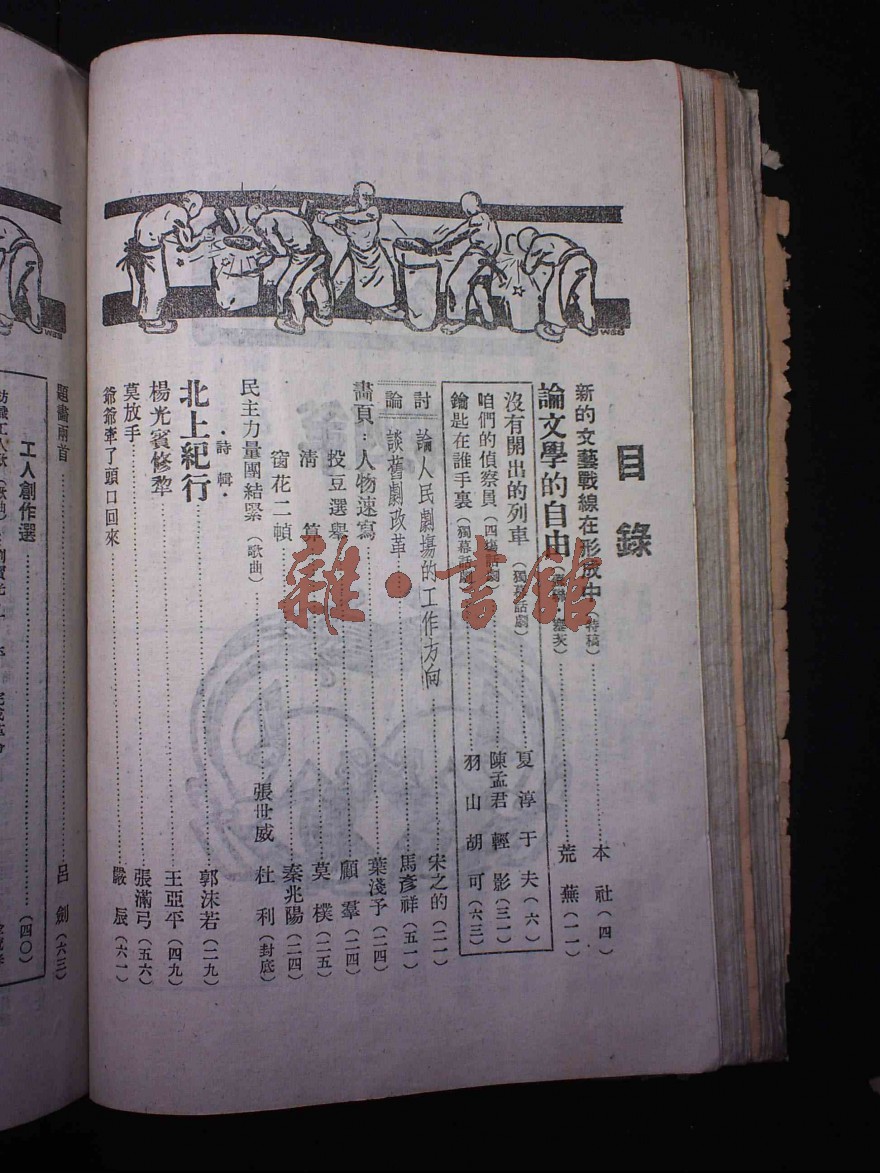 目錄
新的文藝戰線在形成中(特稿)……本社(四)
論文學的自由……荒蕪(一一)
沒有開出的列車(獨幕話劇)……夏淳于夫(六)
咱們的偵察員(四場話劇)……陳孟君輕影(三一)
鑰匙在誰手裏(獨幕話劇)……羽山胡可(六三)
討論
論人民劇場的工作方向……宋之的(二一)
談舊劇改革……馬彥祥(五一)
畫頁:人物速寫……葉淺予(二四)
投豆選舉……顧羣(二四)
清算……莫樸(二五)
窗花二幀……秦兆陽(二四)
民主力量團結緊(歌曲)……張世威 杜利(封底)
·詩輯·
北上紀行……郭沫若(二九)
楊光賓修犂……王亞平(四九)
莫放手……張滿弓(五六)
爺爺牽了頭口回來……嚴辰(六一)
題畫兩首……呂劍(六三)
工人創作選……(四〇)
雜·書館